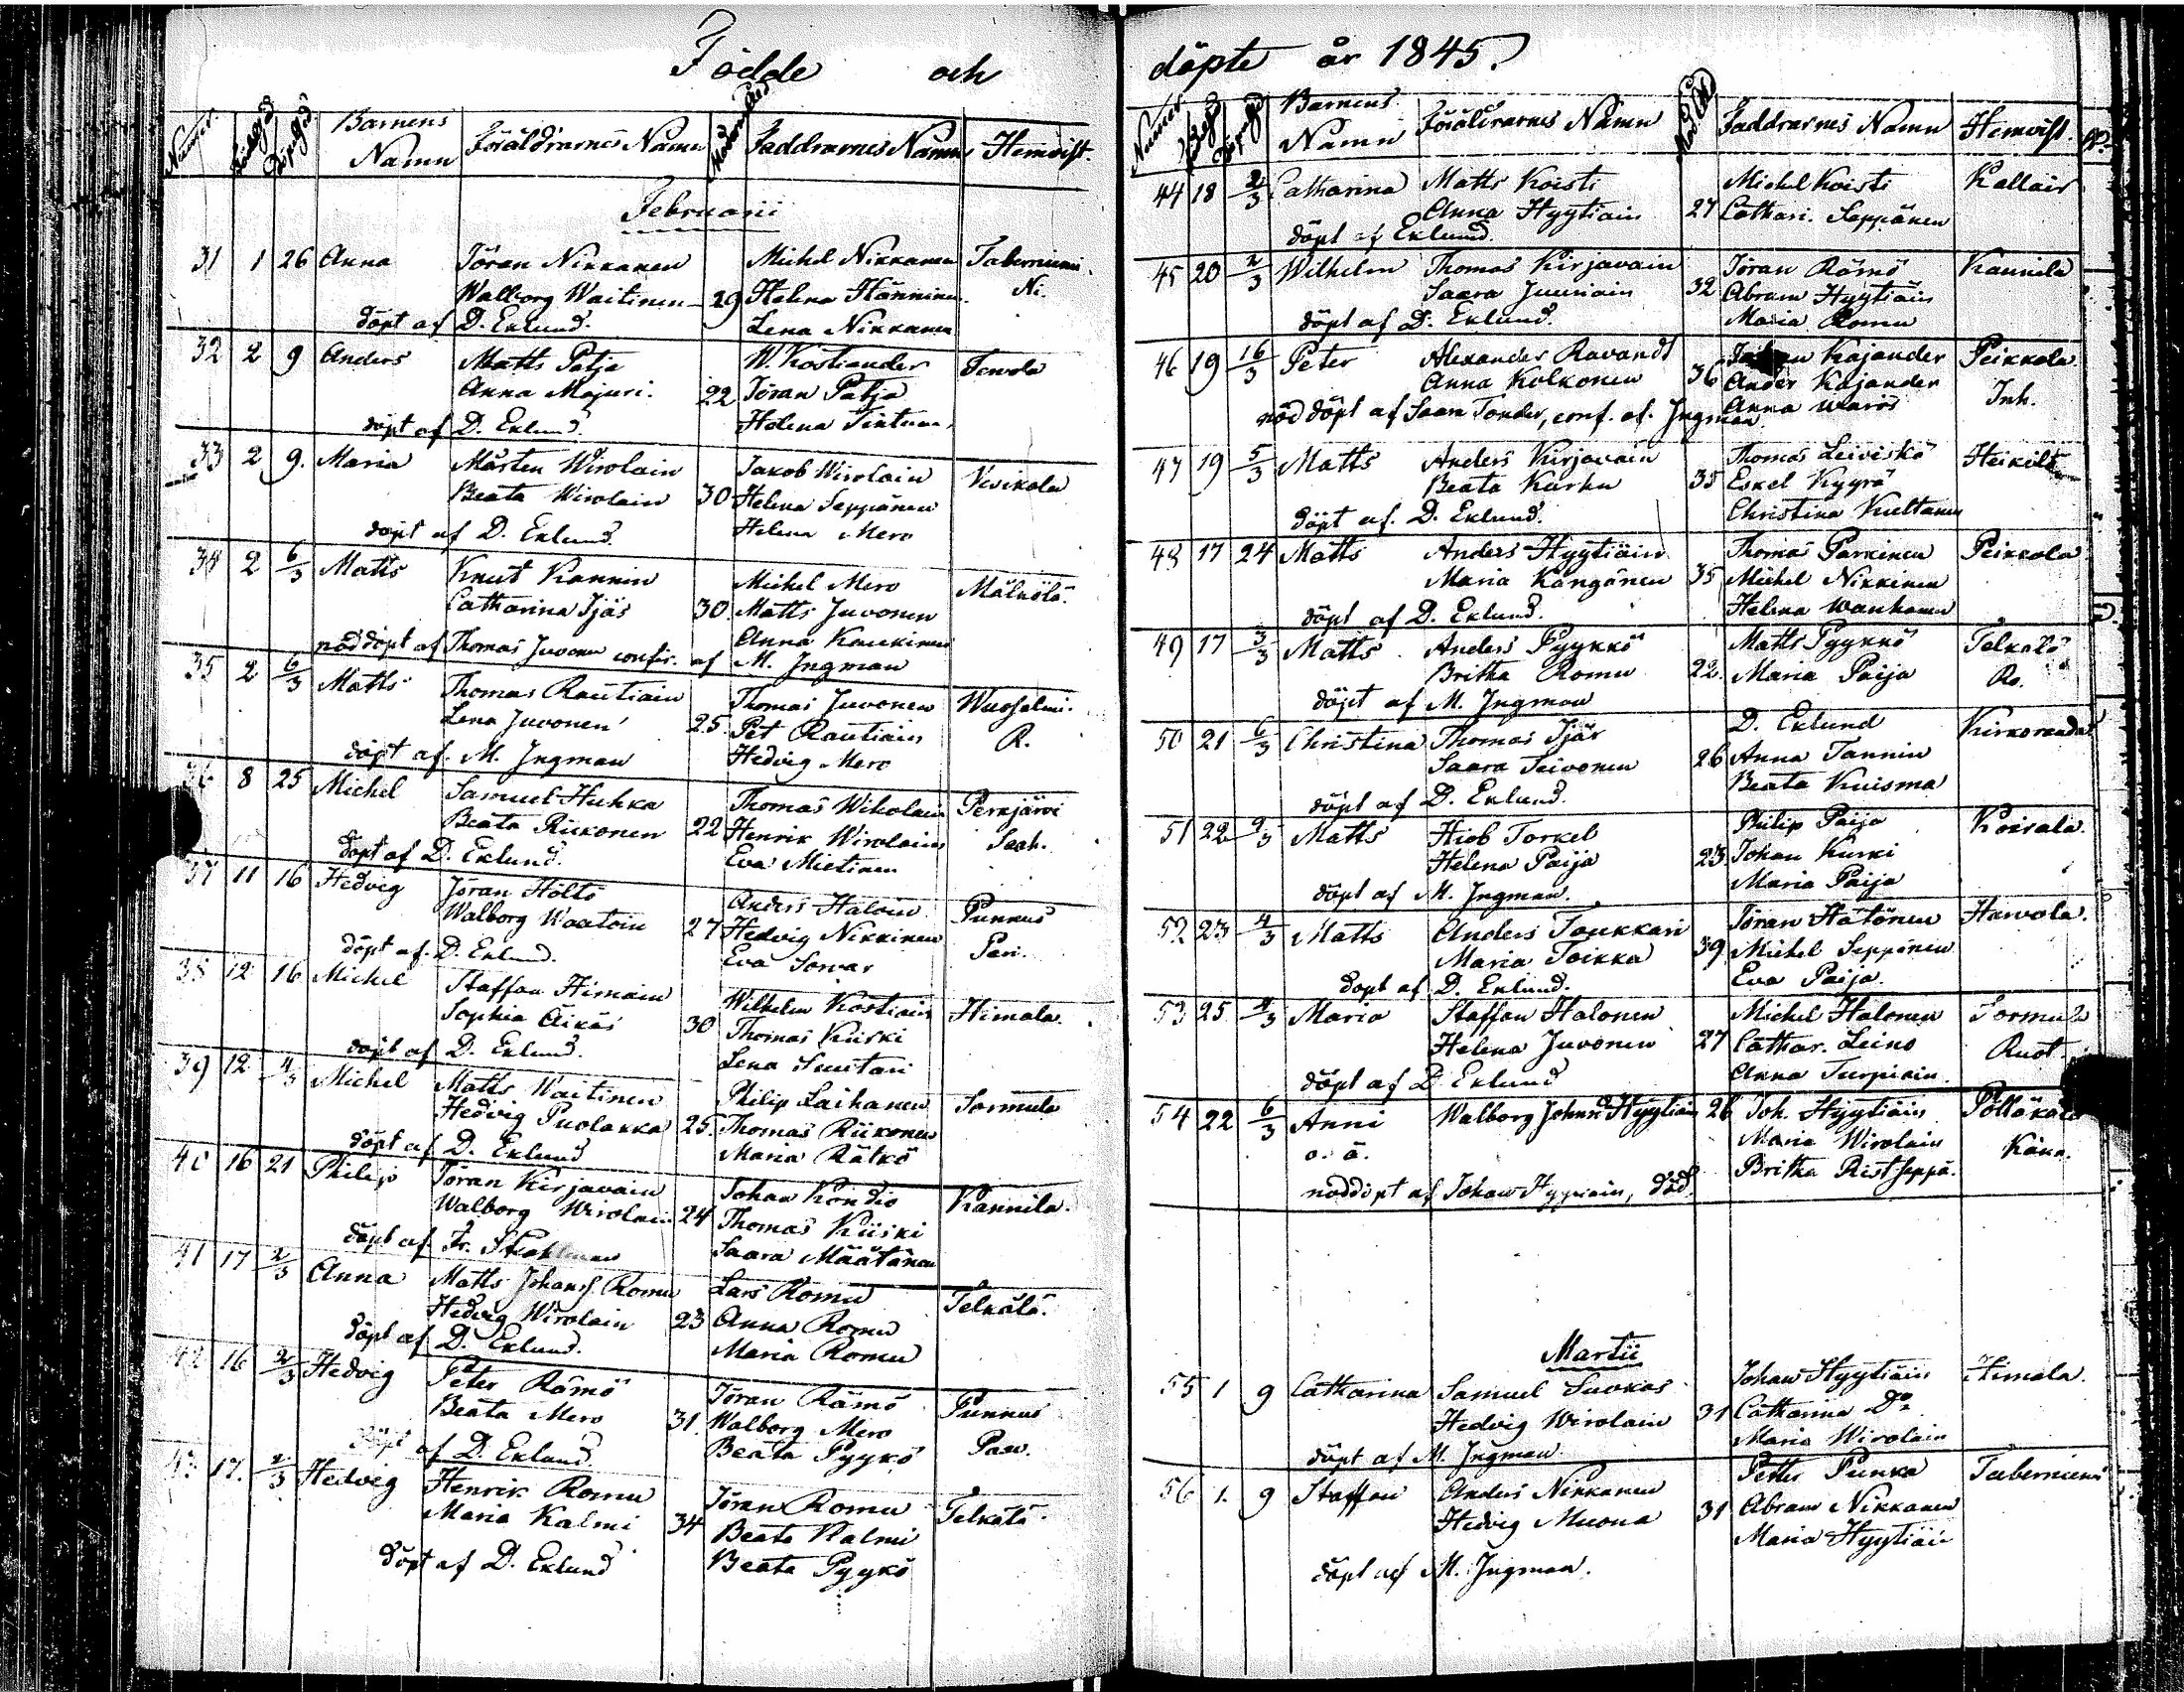 Födde och
Numer. Födelsed. Döpelsed. Barnens Namn Föräldrarnes Namn Modrens ålder Faddrarnes Namn Hemvist.
Februarii
31 1 26 Anna Jöran Nikkanen Michel Nikkanen Taberniemi
Walborg Waitinen 29 Helena Hänninen Ni.
döpt af D. Eklund. Lena Nikkanen
32 2 9 Anders Matts Patja W. Kostiander Tervola
Anna Majuri. 22 Jöran Patja
döpt af D. Eklund. Helena Tintun
33 2 9. Maria Mårten Wirolain Jakob Wirolain Vesikola
Beata Wirolain 30 Helena Seppänen
döpt af D. Eklund. Helena Mero
34 2 6/3 Matts Knut Kannin Michel Mero Mälkölä.
Catharina Ijäs 30. Matts Juvonen
Anna Kaukinen
nöddöpt af Thomas Juvonen confir. af M. Ingman
35 2 6/3 Matts Thomas Rautiain Thomas Juvonen Wuosalmi.
Lena Juvonen 25. Pet Rautiain R.
döpt af. M. Ingman Hedvig Mero
36 8 25 Michel Samuel Huhka Thomas Wikolain Perkjärvi
Beata Riikonen 22 Henrik Wirolain Seah.
döpt af D. Eklund. Eva Mietinen
37 11 16 Hedvig Jöran Hölts Anders Haloin Punnus
Walborg Waatoin 27 Hedvig Nikkinen Pari.
döpt af. D. Eklund. Eva Sorvar
38 12 16 Michel Staffan Himain Wilhelm Kostiain Himala.
Sophia Äikäs 30 Thomas Kiiski
döpt af D. Eklund. Lena Suutari
39 12 4/3 Michel Matts Waitinen Philip Laihanen Sormula
Hedvig Puolakka 25. Thomas Riikonen
döpt af D. Eklund Maria Rätkö
40 16 21 Philip Jöran Kirjavain Johan Kondio Kannila.
Walborg Wirolain 24 Thomas Kiiski
döpt af Fr. Stråhlman Saara Määtänen
41 17 2/3 Anna Matts Johans. Romu Lars Romu Telkälä.
Hedvig Wirolain 23 Anna Romu
döpt af D. Eklund. Maria Romu
42 16 2/3 Hedvig Peter Rämö Jöran Rämö Punnus
Beata Mero 31. Walborg Mero Paav.
döpt af D. Eklund. Beata Pyykö
43 17. 2/3 Hedvig Henrik Romu Jöran Romu Telkälä.
Maria Kalmi 34 Beata Kalmi
döpt af D. Eklund Beata Pyykö
döpte år 1845.
Numer. Barnens Namn Föräldrarnes Namn Faddrarnes Namn Hemvist.
44 18 2/3 Catharina Matts Koisti Michel Koisti Kallais
Anna Hyytiain 27 Cathari. Seppänen
döpt af Eklund.
45 20 2/3 Wilhelm Thomas Kirjavain Jöran Rämö Kannila
Saara Juuriain 32 Abram Hyytiäin
döpt af D. Eklund. Maria Romu
46 19 16/3 Peter Alexander Ravandt Kajander Peikkola
Anna Kolkonen 36 Ander Kajander Inh.
nöd döpt af Saara Tonder, conf. af. Ingman Anna Warös
47 19 5/3 Matts Anders Kirjavain Thomas Leiviskö Heikilä
Beata Kurku 35 Eskel Kyyrö
döpt af. D. Eklund. Christina Kultanen
48 17 24 Matts Anders Hyytiäin Thomas Parkinen Peikkola
Maria Kängänen 35 Michel Nikkinen
döpt af D. Eklund. Helena Wanhanen
49 17 3/3 Matts Anders Pyykkö Matts Pyykkö Telkälä
Britha Romu 22. Maria Paija Ro.
döpt af M. Ingman
50 21 6/3 Christina Thomas Ijäs D. Eklund Kirkoranda
Saara Teivonen 26 Anna Tannin
döpt af D. Eklund. Beata Kuisma
51 22 9/3 Matts Hiob Torkel Philip Paija Koirala.
Helena Paija 23 Johan Kurki
döpt af M. Ingman. Maria Paija
52 23 4/3 Matts Anders Toukkari Jöran Hätönen Hawola.
Maria Toikka 39 Michel Seppänen
döpt af D. Eklund. Eva Paija.
53 25 4/3 Maria Staffan Halonen Michel Halonen Sormula
Helena Juvonen 27 Cathar. Leino Ruot.
döpt af D. Eklund Anna Turpiain
54 22 6/3 Anni Walborg Johans D. Hyytiäin 26 Joh. Hyytiäin Pölläkälä
o. ä. Maria Wirolain Könn.
nöddöpt af Johan Hyytiain, död. Britha Ristseppä.
Martii
55 1 9 Catharina Samuel Suokas Johan Hyytiäin Himala.
Hedvig Wirolain 31 Catharina Do
döpt af M. Ingman. Maria Wirolain
56 1. 9 Staffan Anders Nikkanen Petter Punka Taberniemi
Hedvig Muona 31 Abram Nikkanen
döpt af M. Ingman. Maria Hyytiäin